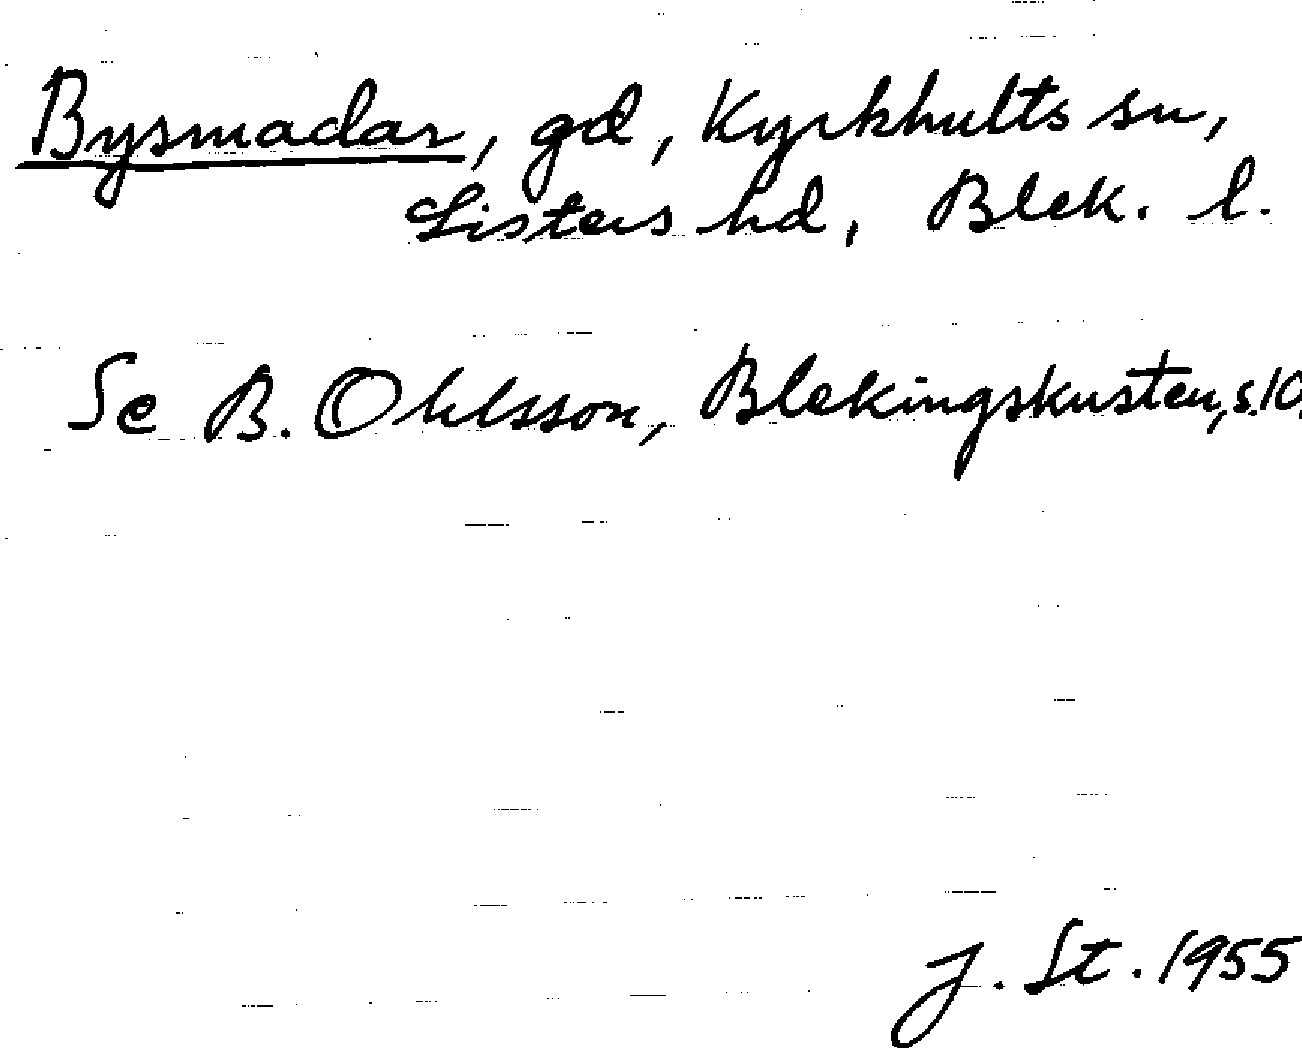 Bysmadar, gd, Kyrkhults sn,
Listers hd, Blek. l.
Se B. Ohlsson, Blekingskusten, s. 10.
J. St. 1955